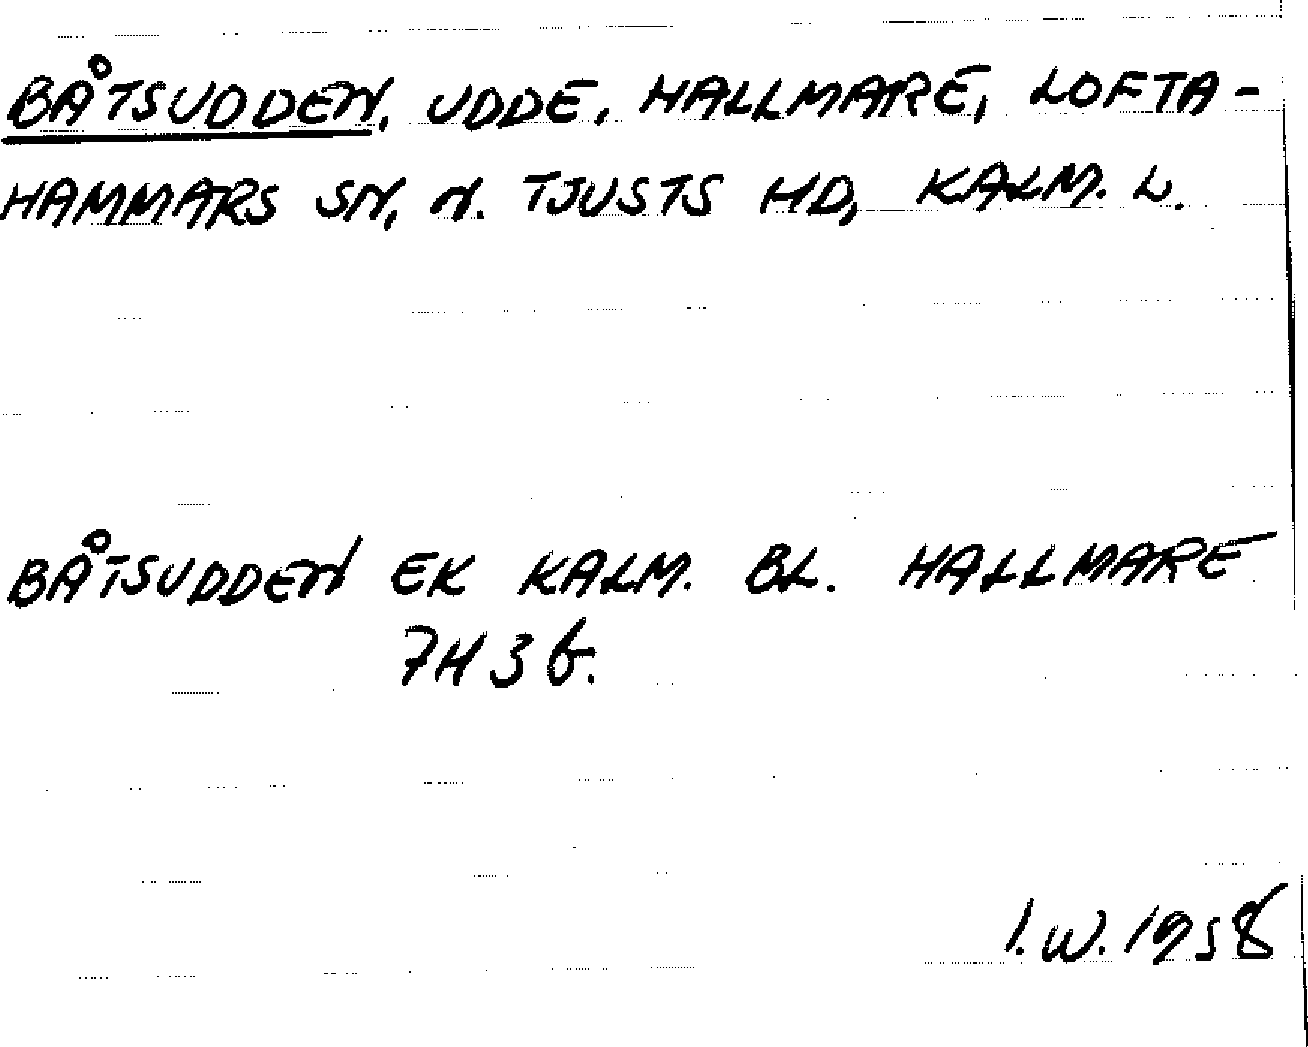 BÅTSUDDEN, UDDE, HALLMARE, LOFTA-
HAMMARS SN, N. TJUSTS HD, KALM. L.
BÅTSUDDEN EK KALM. BL. HALLMARE
7H 3 b.
I.W. 1958